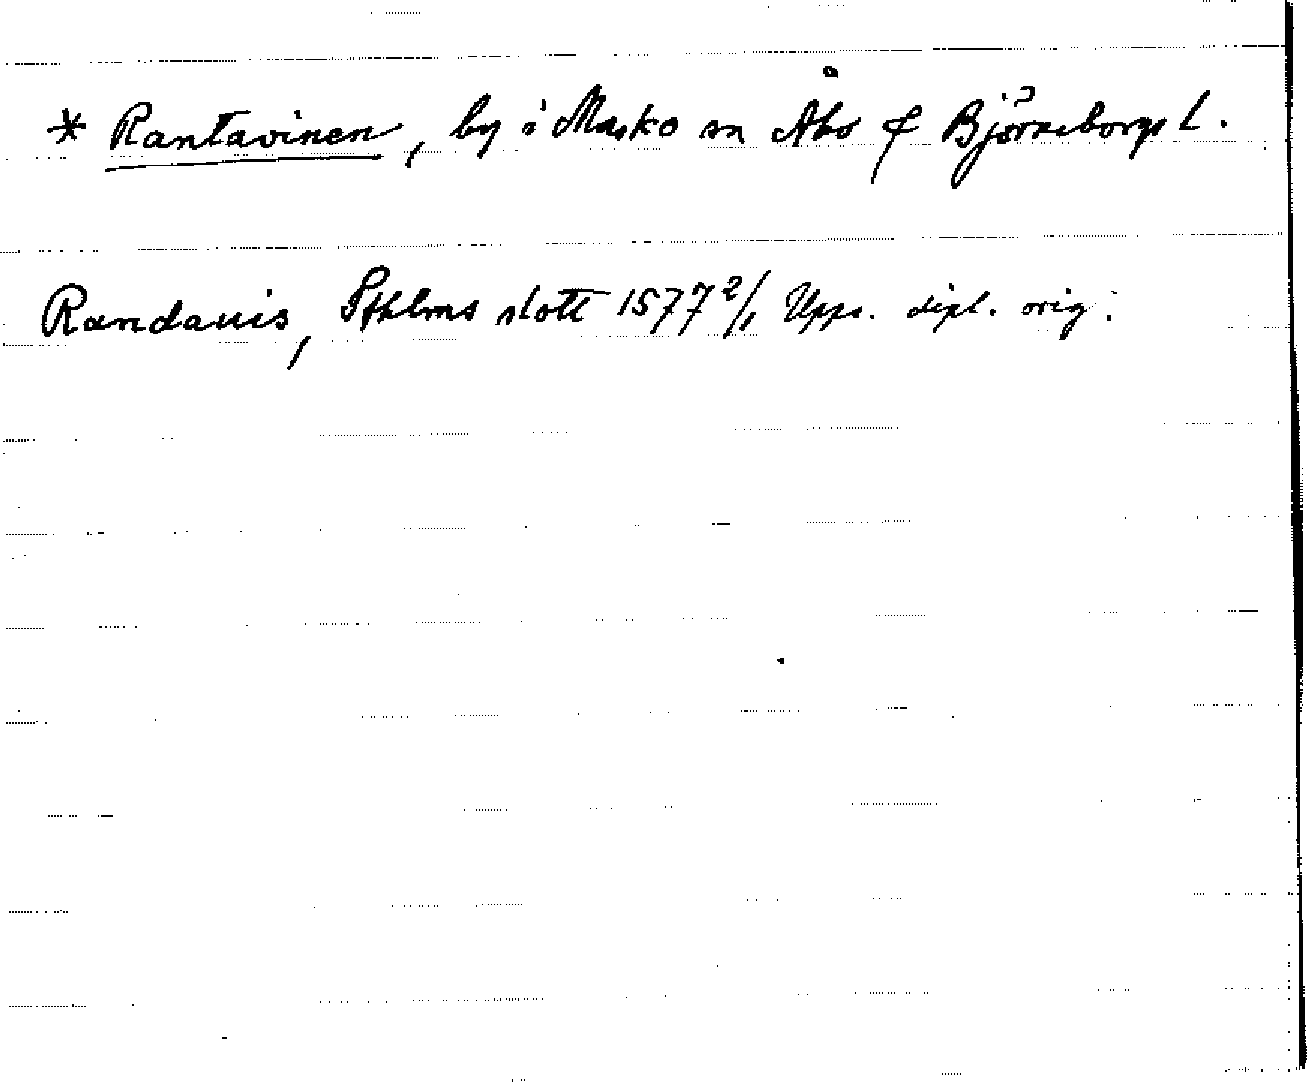 * Rantavinen, by i Masko sn Åbo & Björneborgs L.
Randauis, Sthlms slott 1577 2/1 Upps. dipl. orig.